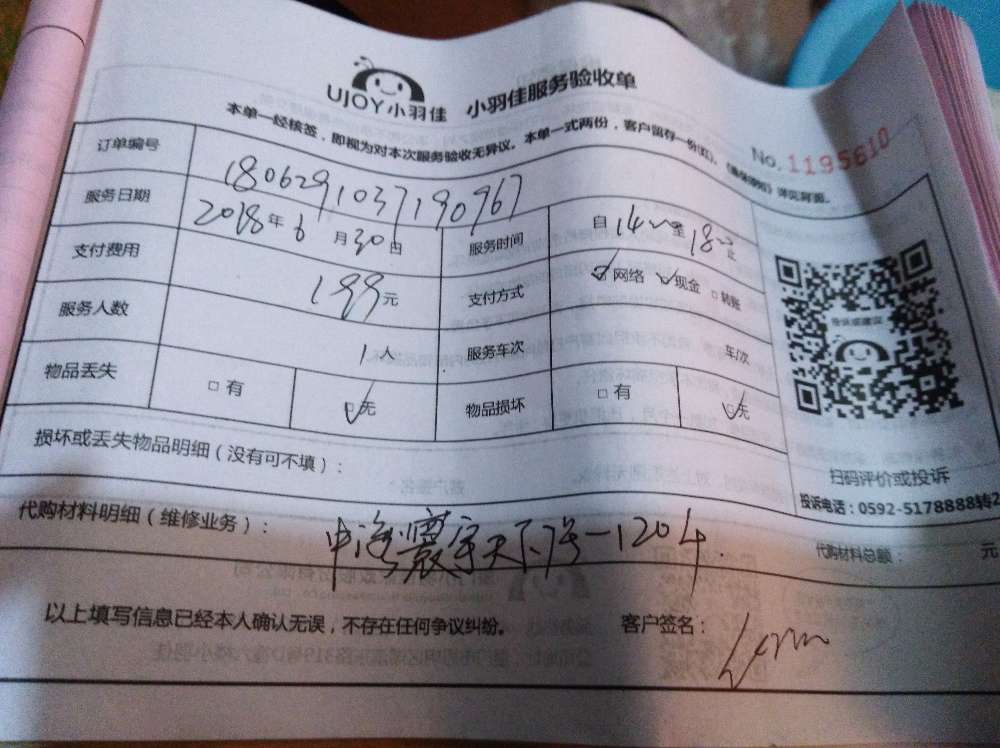 UJOY小羽佳 小羽佳服务验收单
本单一经核签，即视为对本次服务验收无异议。本单一式两份，客户留存一份(红)。
No.1195610
订单编号 1806291037190967
服务日期 2018年6月30日 服务时间 自14~至18~止
支付费用 199元 支付方式 网络 现金 转账
服务人数 1人 服务车次 车/次
物品丢失 有 无 物品损坏 有 无
损坏或丢失物品明细（没有可不填）：
扫码评价或投诉
投诉电话：0592-5178888转2
代购材料明细（维修业务）： 中海寰宇天下7号-1204 代购材料总额： 元
以上填写信息已经本人确认无误，不存在任何争议纠纷。 客户签名：